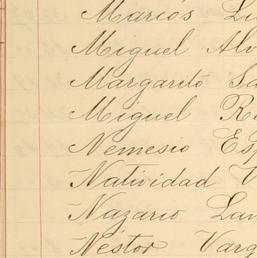 Marcos Lu
Miguel Alv
Margarito Sa
Miguel R
Nemesio Esp
Natividad V
Nazario Lan
Néstor Varg